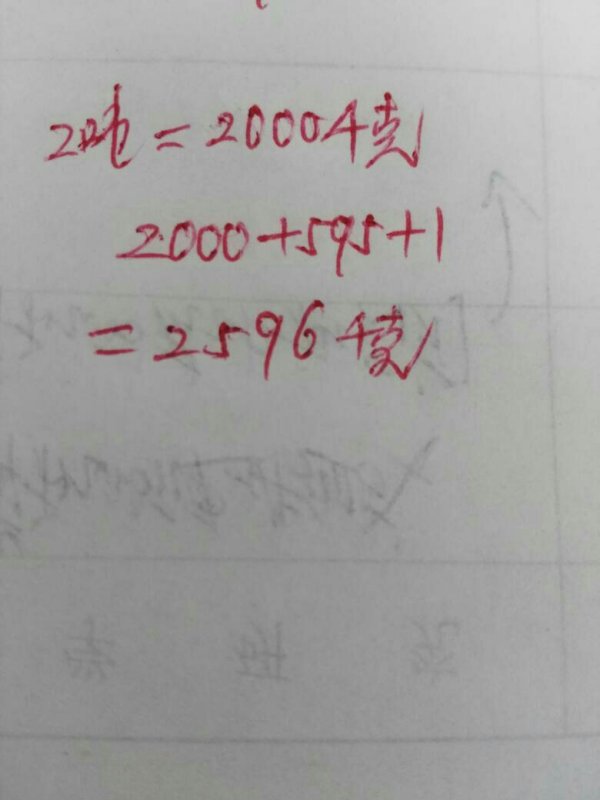 2吨=2000千克
2000+595+1
=2596千克